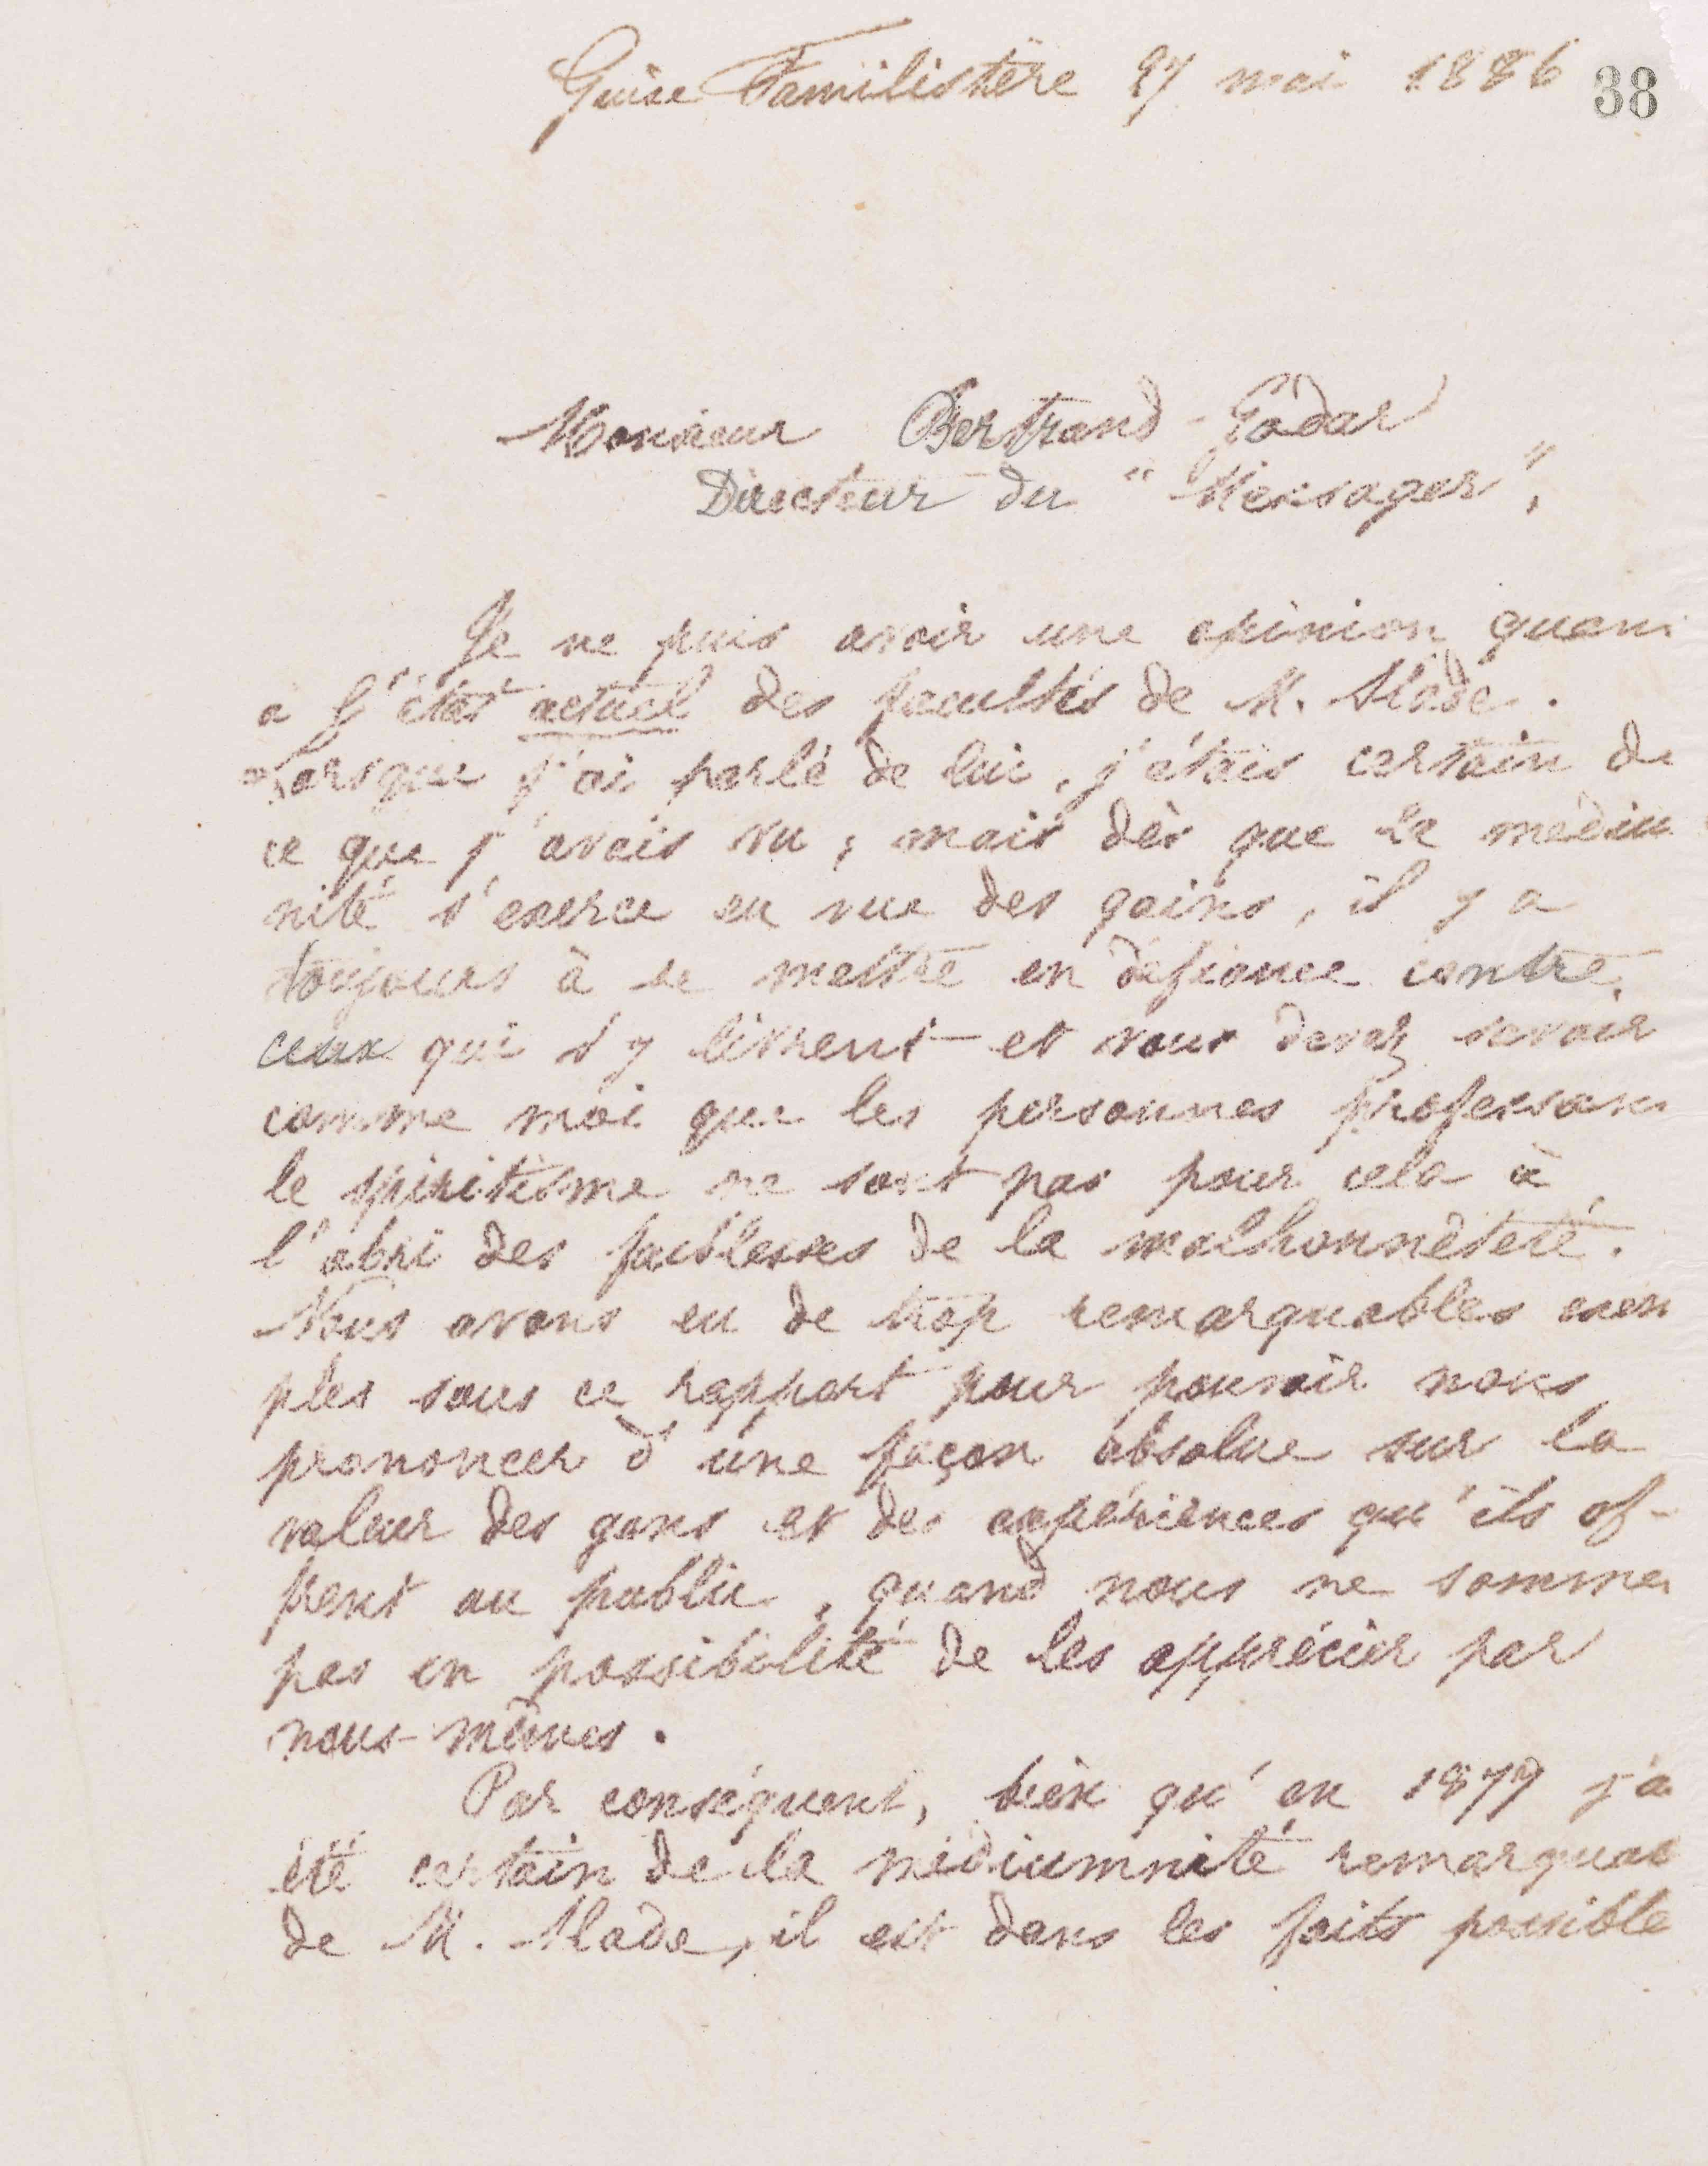 Guise Familistère 27 mai 1886
38
Monsieur Bertrand-Godar
Directeur du "Messager",
Je ne puis avoir une opinion quant
à l'état actuel des facultés de M. Slade.
Lorsque j'ai parlé de lui, j'étais certain de
ce que j'avais vu ; mais dès que la médium
nité s'exerce en vue des gains, il y a
toujours à se mettre en défiance contre
ceux qui s'y livrent et vous devez savoir
comme moi que les personnes professant
le spiritisme ne sont pas pour cela à
l'abri des faiblesses de la malhonnêteté.
Nous avons eu de trop remarquables exem
ples sous ce rapport pour pouvoir nous
prononcer d'une façon absolue sur la
valeur des gens et des expériences qu'ils of-
frent au public, quand nous ne sommes
pas en possibilité de les apprécier par
nous-mêmes.
Par conséquent, bien qu'en 1877 j'a
été certain de la médiumnité remarquab
de M. Slade, il est dans les faits possible